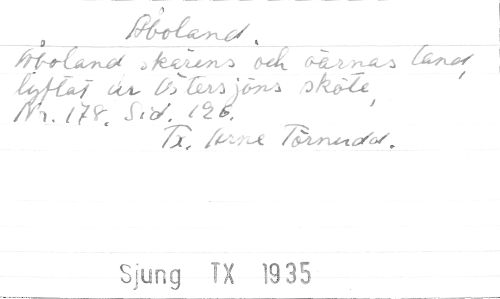 Åboland.
Åboland skärens och öarnas land,
lyftat ur Östersjöns sköte,
Nr. 178. Sid. 126.
Tx. Arne Törnudd.
Sjung TX 1935